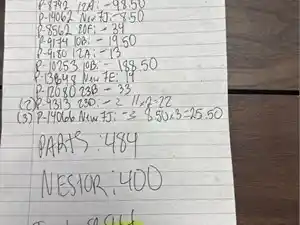 P-8792 12A: -98.50
P-14062 New 7J: -8.50
P-8562 20F: -34
P-9174 10B: -19.50
P-9180 12A -13
P-10253 10B: -188.50
P-13848 New 7E: 19
P-12080 23B - 33
(2) P-9313 23D: -2 11x2=22
(3) P-14066 New 7J: -3 8.50x3=25.50
PARTS: 484
NESTOR: 400